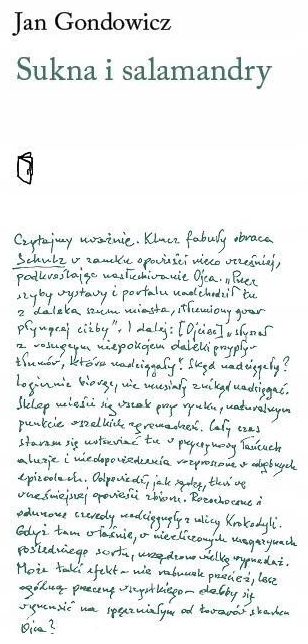 Jan Gondowicz
Sukna i salamandry
Czytajmy uważnie. Klucz fabuły obraca
Schulz w zamku opowieści nieco wcześniej,
podkreślając nasłuchiwanie Ojca. „Przez
szyby wystawy i portalu nadchodził tu
z daleka szum miasta, stłumiony gwar
płynącej ciżby". I dalej: [Ojciec] „słyszał
z rosnącym niepokojem daleki przypływ
tłumów, które nadciągały". Skąd nadciągały?
Logicznie biorąc, nie musiały znikąd nadciągać.
Sklep mieści się wszak przy rynku, naturalnym
punkcie wszelkich zgromadzeń. Cały czas
staram się ustawiać tu w przyczynowy łańcuch
aluzje i niedopowiedzenia rozproszone w odrębnych
epizodach. Odpowiedź, jak sądzę, tkwi we
wcześniejszej opowieści zbioru. Rozochocone i
odurzone czeredy nadciągnęły z ulicy Krokodyli.
Gdyż tam właśnie, w niezliczonych magazynach
pośledniego sortu, urządzono wielką wyprzedaż.
Może taki efekt – nie rabunek przecież, lecz
ogólną przecenę wszystkiego – dałby się
wymusić na spęczniałym od towarów skarbcu
Ojca?